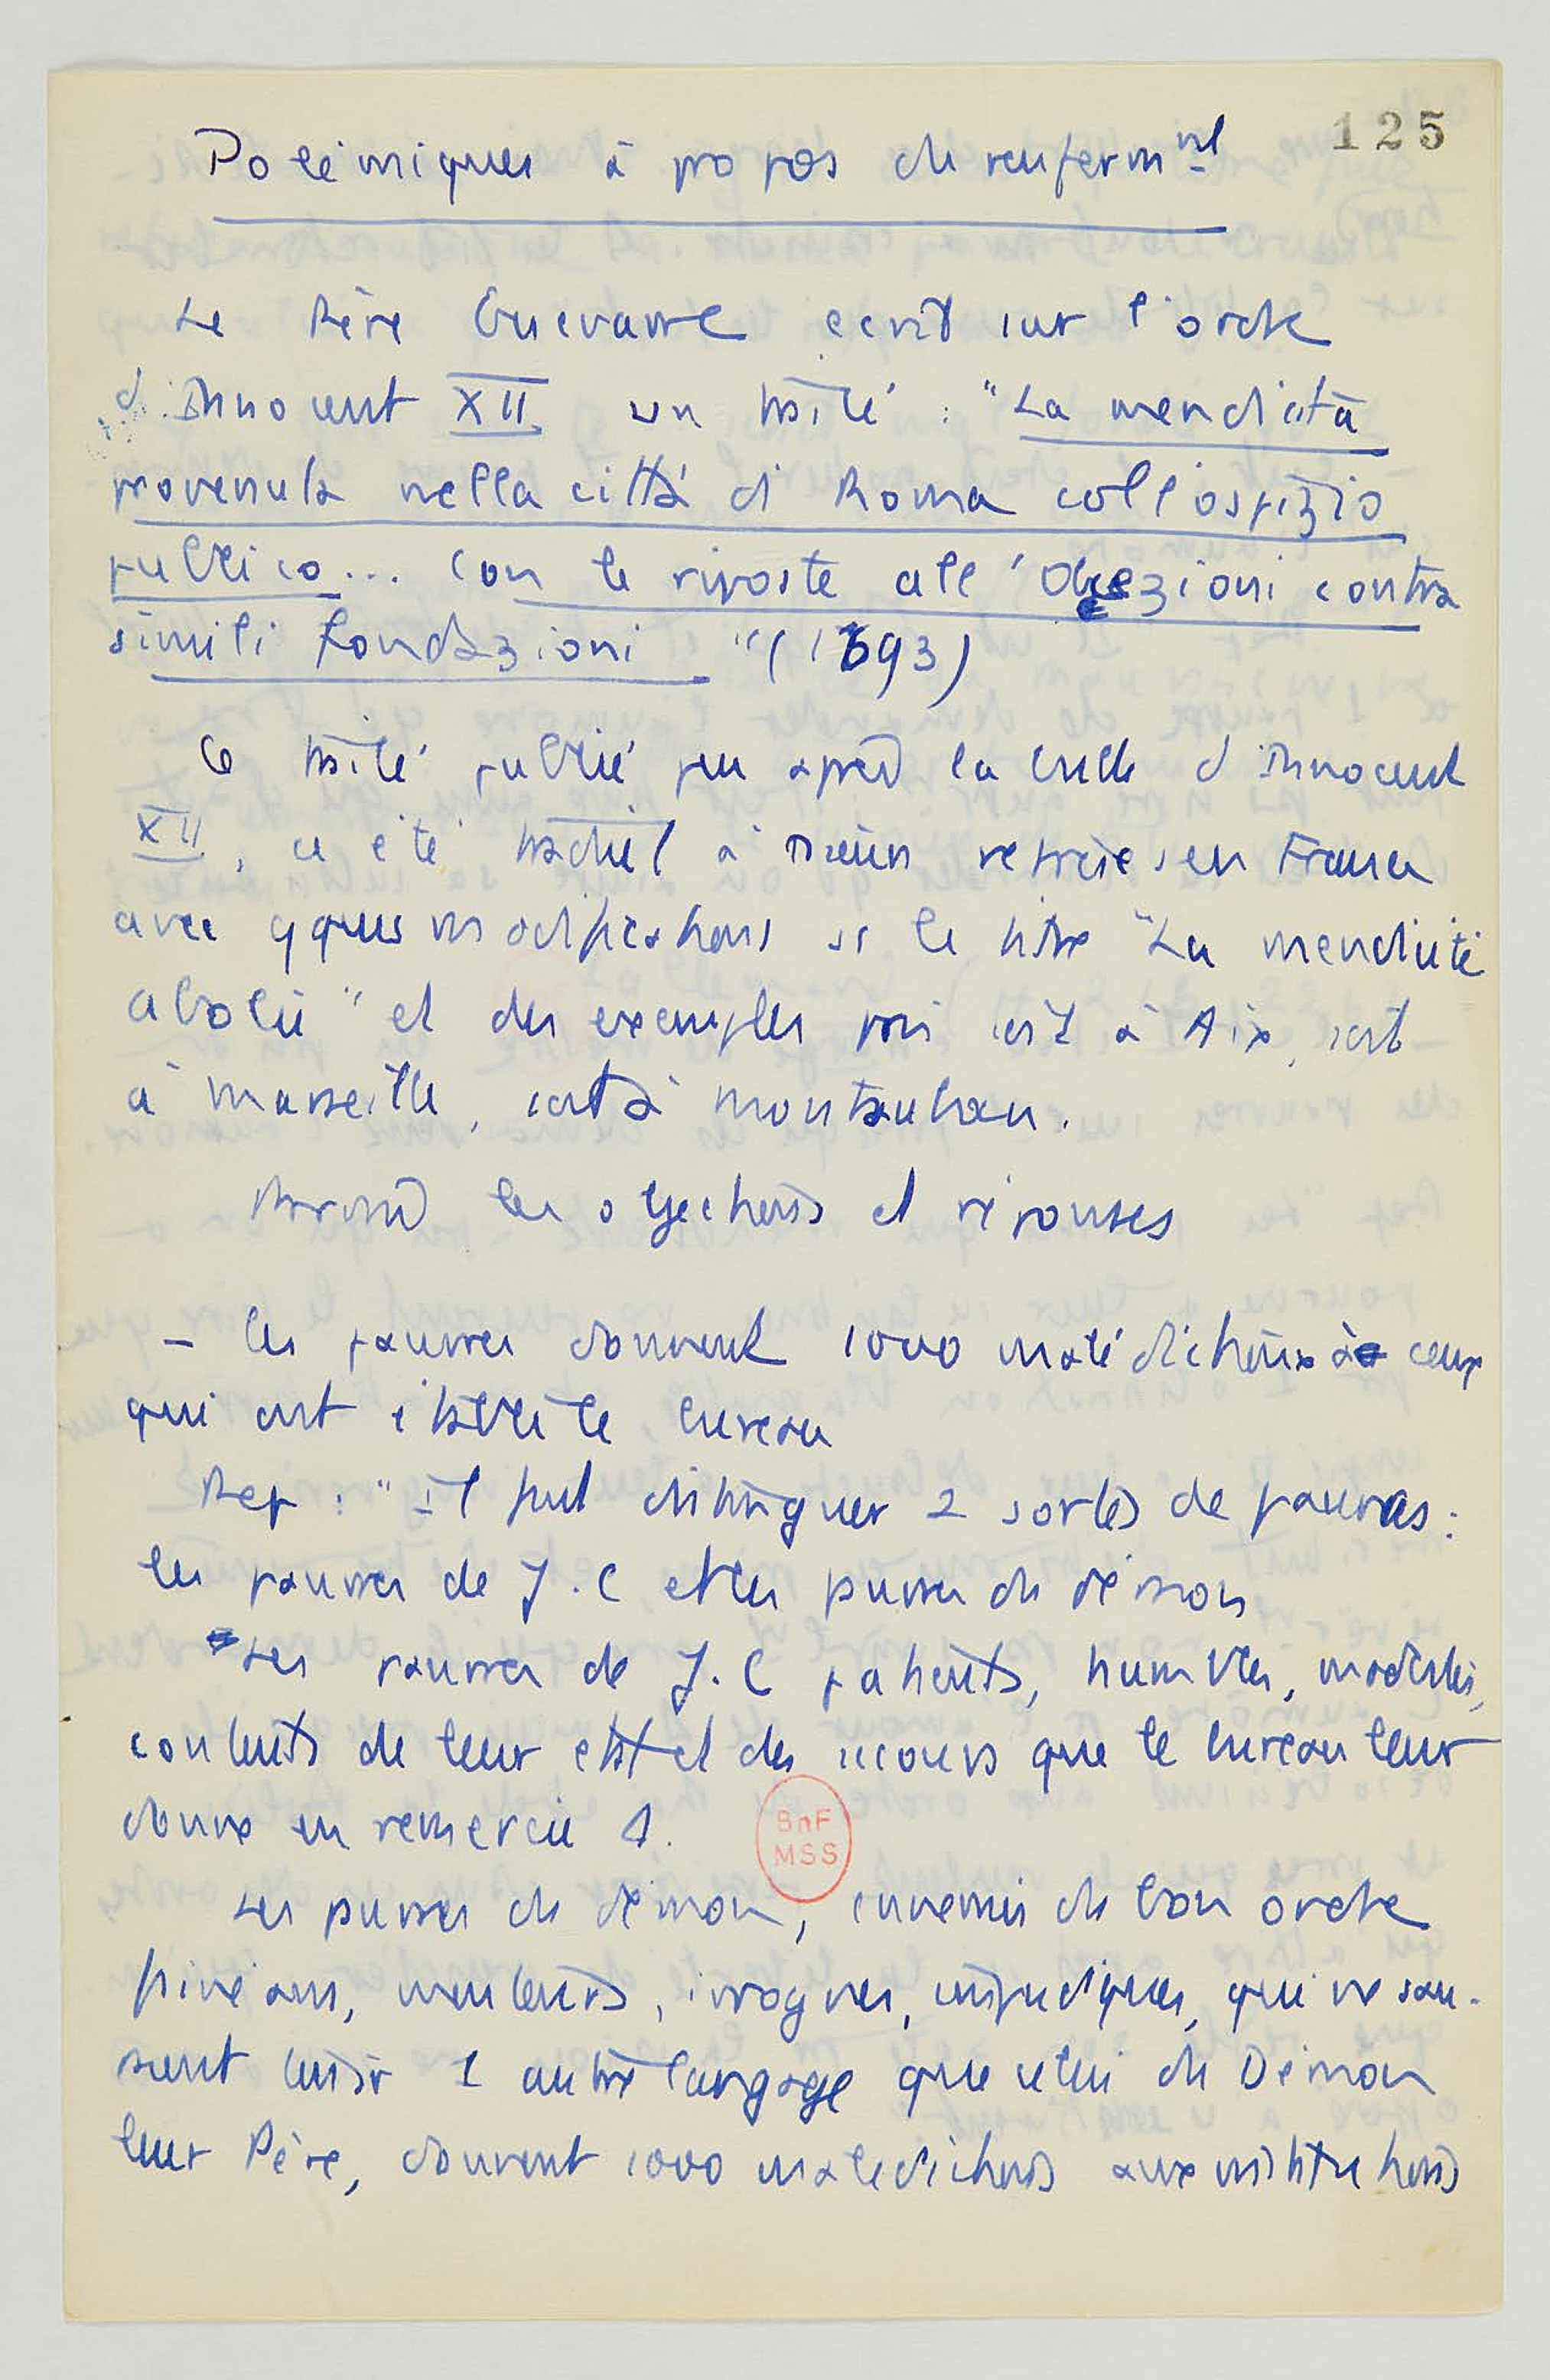 125
Polémiques à propos du renferm^nt
Le Père Guevarre écrit sur l'ordre
d'Innocent XII un traité : "La mendicità
provenuta nella città di Roma coll'ospizio
publico... con le risposte all'obiezioni contra
simili fondazioni" (1693)
Ce traité publié peu après la bulle d'Innocent
XII, a été traduit à plusieurs reprises en France
avec qques modifications ss le titre "La mendicité
abolie" et des exemples pris soit à Aix, soit
à Marseille, soit à Montauban.
les objections et réponses
- les pauvres donnent 1000 malédictions à ceux
qui ont établi le bureau
Rep : "il faut distinguer 2 sortes de pauvres :
les pauvres de J.C et les pauvres du démon
Les pauvres de J.C patients, humbles, modestes,
contents de leur état et des secours que le bureau leur
donne en remercie
Les pauvres du démon, ennemis du bon ordre
fainéans, menteurs, ivrognes, impudiques, qui ne sau-
raient tenir 1 autre langage que celui du Démon
leur Père, donnent 1000 malédictions aux institutions
BnF
MSS